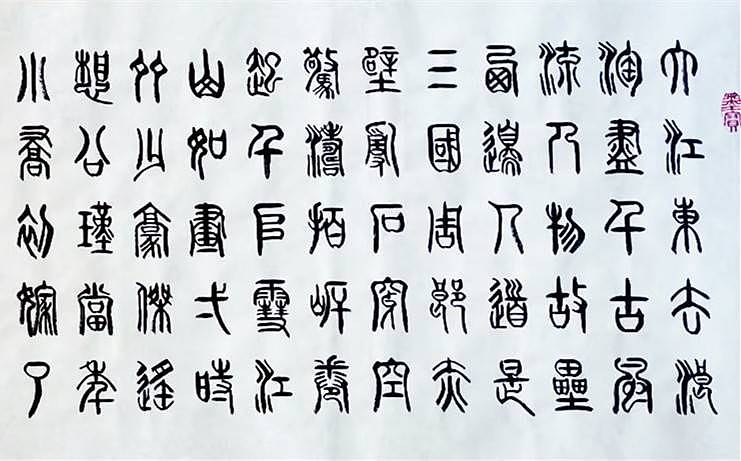 大江東去浪
淘盡千古風
流人物故壘
西邊人道是
三國周郎赤
壁亂石穿空
驚濤拍岸卷
起千𠂤雪江
山如畫弌時
多少豪傑遙
想公瑾當年
小喬初嫁了
墨寶